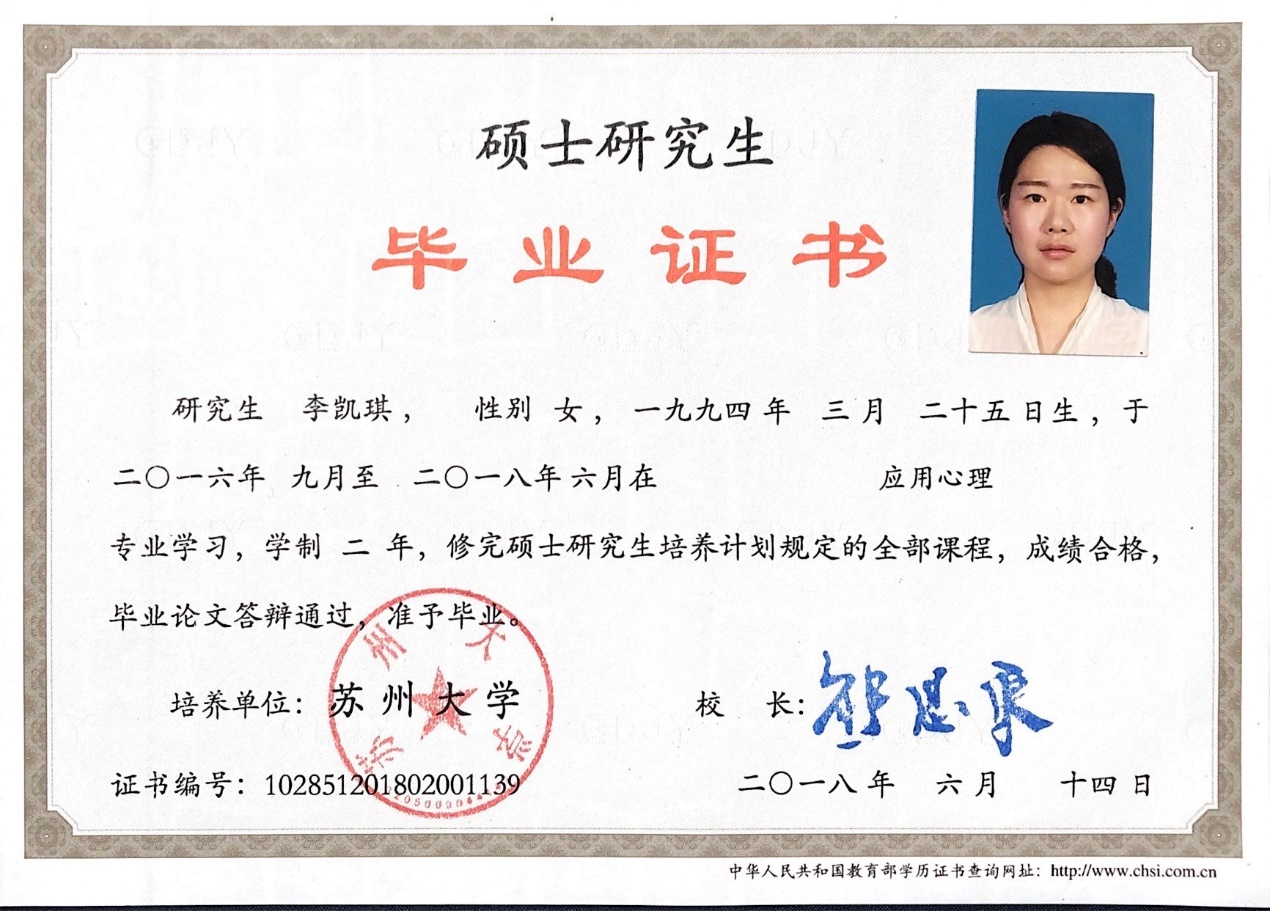 硕士研究生
毕业证书
研究生 李凯琪， 性别 女，一九九四 年 三 月 二十五 日生，于
二〇一六年 九月至 二〇一八年 六月在 应用心理
专业学习，学制 二 年，修完硕士研究生培养计划规定的全部课程，成绩合格，
毕业论文答辩通过，准予毕业。
培养单位：苏州大学
校 长：
证书编号：102851201802001139
二〇一八 年 六 月 十四 日
中华人民共和国教育部学历证书查询网址：http://www.chsi.com.cn